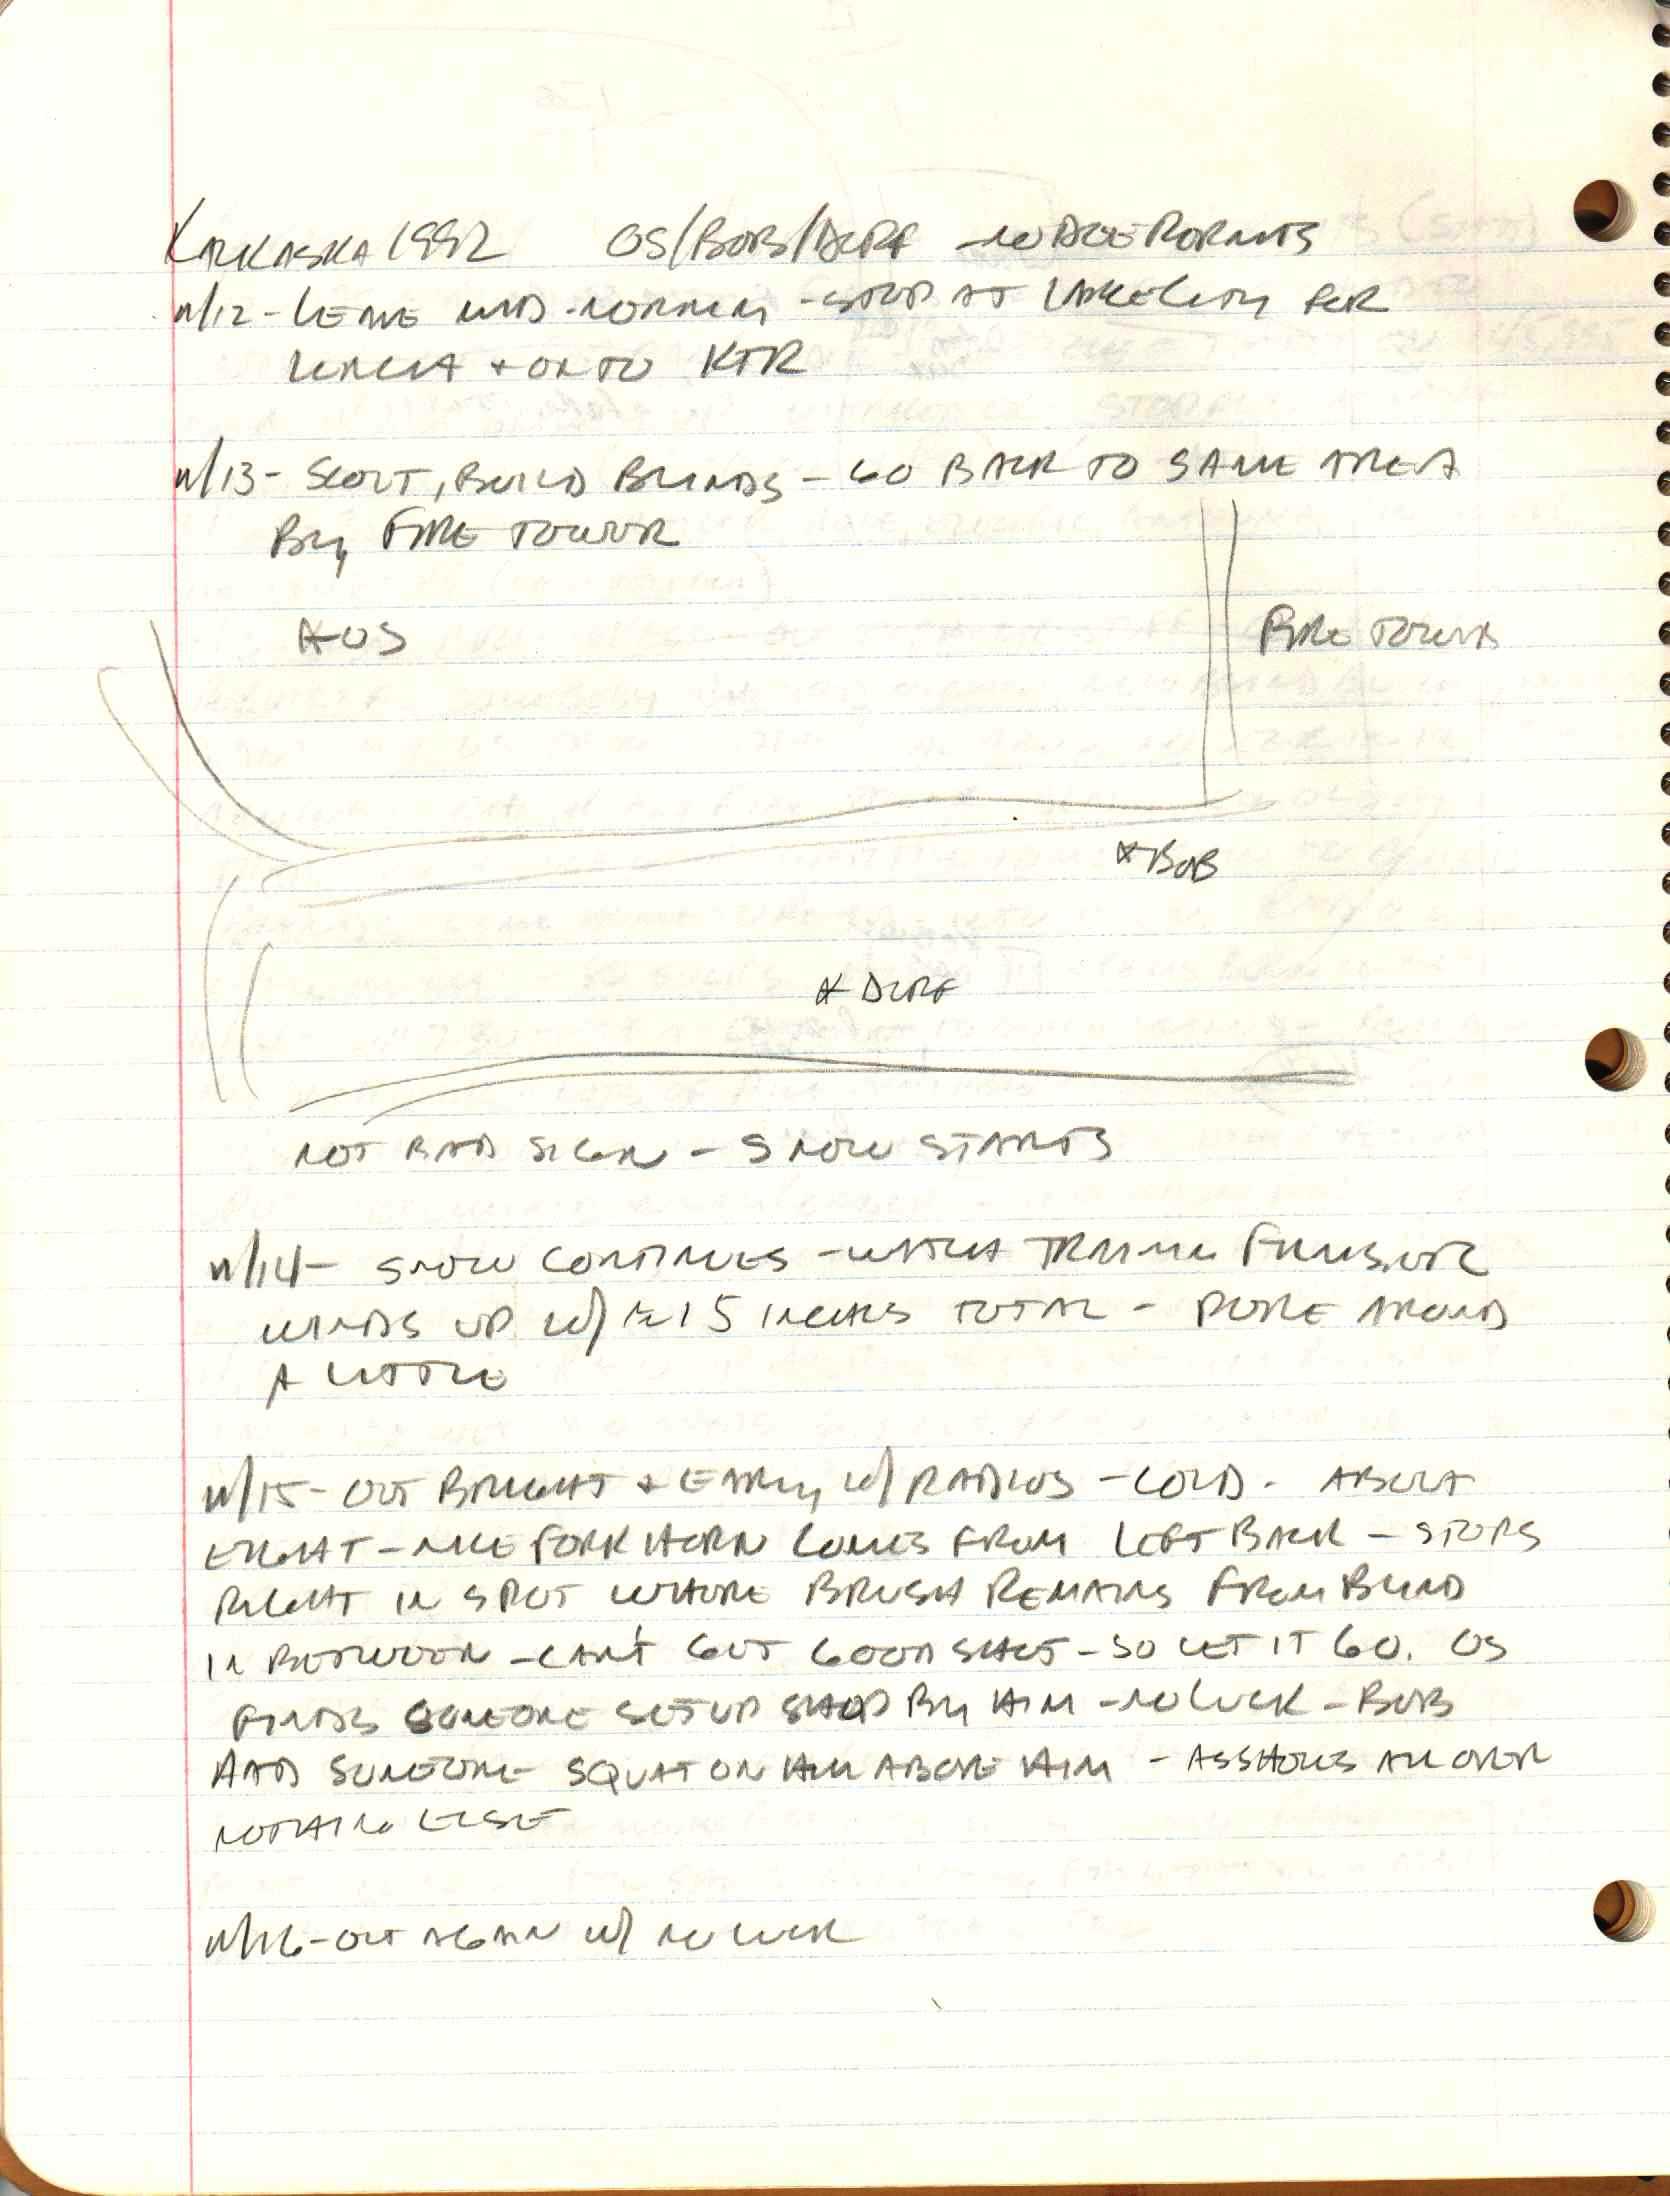 KALKASKA 1992 OS/BOB/DURF - NO DOE PERMITS
11/12 - LEAVE MID-MORNING - STOP AT LAKE CITY FOR
LUNCH + ON TO KTR
11/13 - SCOUT, BUILD BLINDS - GO BACK TO SAME AREA
BY FIRE TOWER
X OS
FIRE TOWER
X BOB
X DURF
NOT BAD SIGN - SNOW STARTS
11/14 - SNOW CONTINUES - WATCH TRAINING FILMS, ETC
WINDS UP W/ ≈ 15 INCHES TOTAL - POKE AROUND
A LITTLE
11/15 - OUT BRIGHT + EARLY W/ RADIOS - COLD - ABOUT
EIGHT - NICE FORK HORN COMES FROM LEFT BACK - STOPS
RIGHT IN SPOT WHERE BRUSH REMAINS FROM BLIND
IN BETWEEN - CAN'T GET GOOD SHOT - SO LET IT GO. OS
FINDS SOMEONE SET UP SHOP BY HIM - NO LUCK - BOB
HAD SOMEONE SQUAT ON HILL ABOVE HIM - ASSHOLES ALL OVER
NOTHING ELSE
11/16 - OUT AGAIN W/ NO LUCK